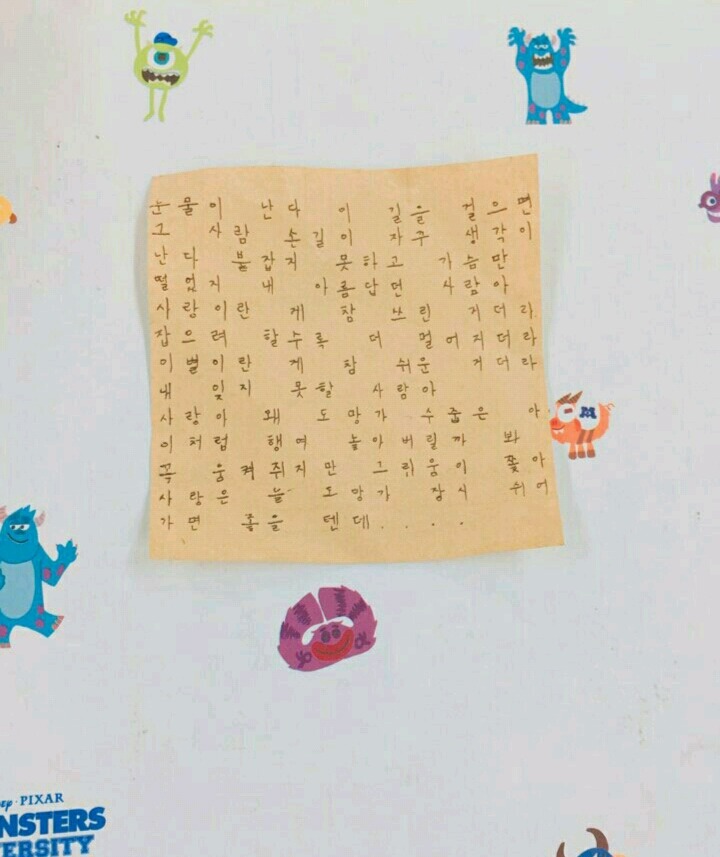 눈물이 난다 이 길을 걸으면
그 사람 손길이 자꾸 생각이
난다 붙잡지 못하고 가슴만
떨었지 내 아름답던 사람아
사랑이란 게 참 쓰린 거더라
잡으려 할수록 더 멀어지더라
이별이란 게 참 쉬운 거더라
내 잊지 못할 사람아
사랑아 왜 도망가 수줍은 아
이처럼 행여 놓아버릴까 봐
꼭 움켜쥐지만 그리움이 쫓아
사랑은 늘 도망가 잠시 쉬어
가면 좋을 텐데....
PIXAR